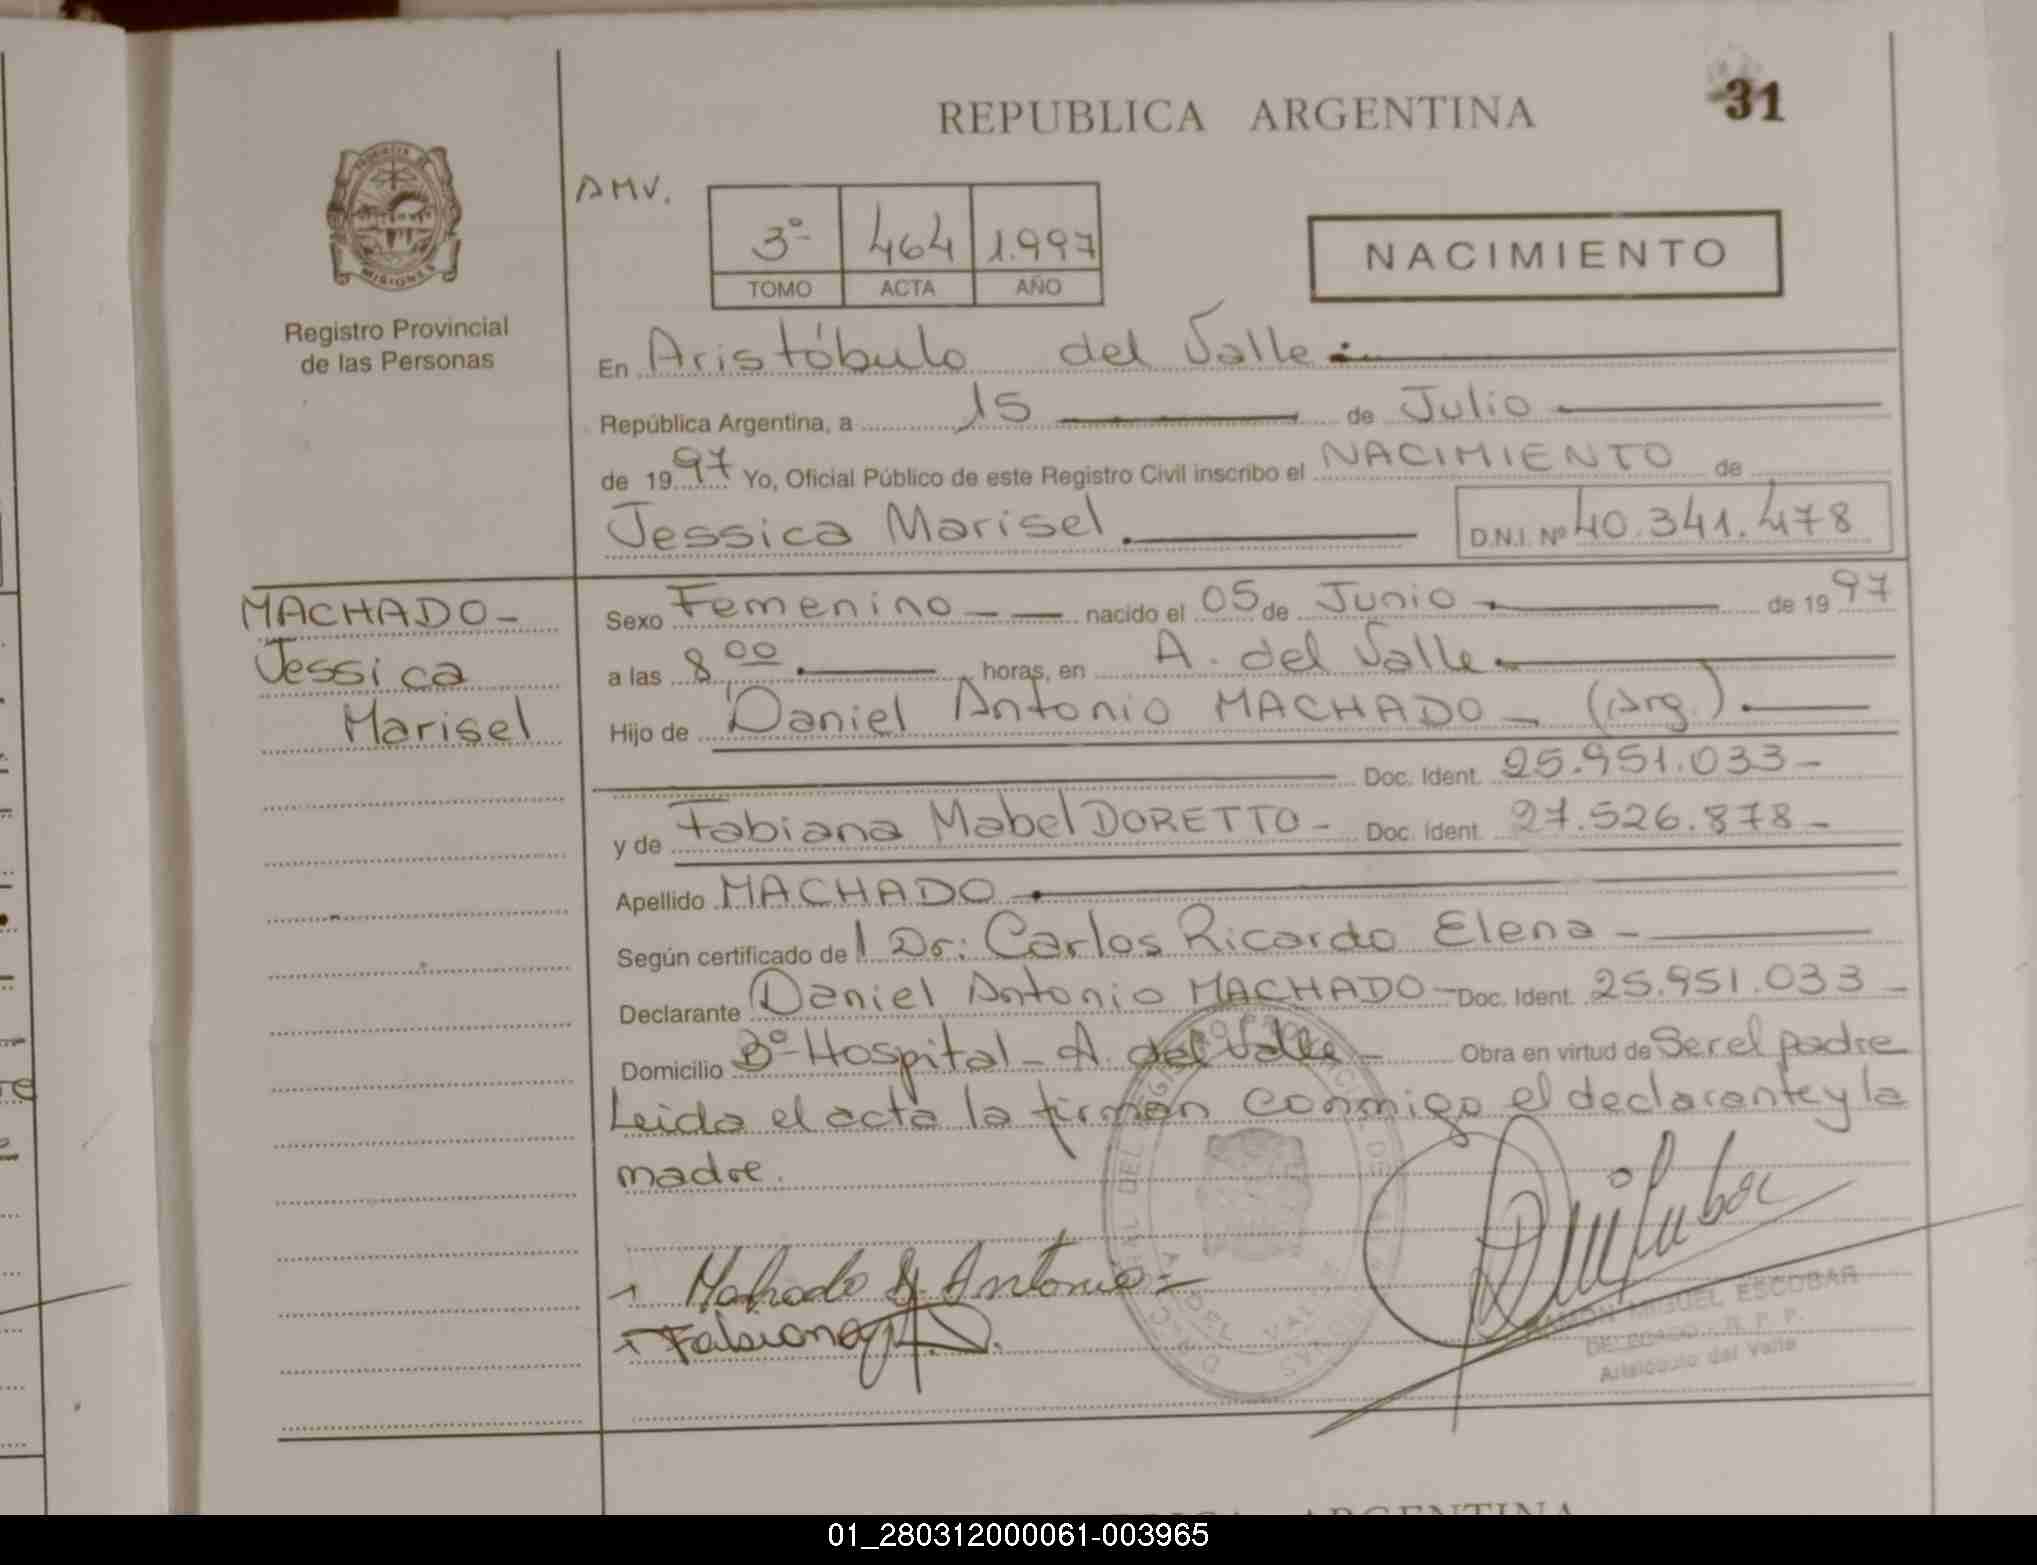 REPUBLICA ARGENTINA
31
PROVINCIA DE
MISIONES
Registro Provincial
de las Personas
AMV.
3º 464 1.997
TOMO ACTA AÑO
NACIMIENTO
En Aristóbulo del Valle
República Argentina, a 15 de Julio
de 1997 Yo, Oficial Público de este Registro Civil inscribo el NACIMIENTO de
Jessica Marisel D.N.I. Nº 40.341.478
MACHADO-
Jessica
Marisel
Sexo Femenino nacido el 05 de Junio de 1997
a las 8,00 horas, en A. del Valle
Hijo de Daniel Antonio MACHADO - (Arg.)
Doc. Ident. 25.951.033-
y de Fabiana Mabel DORETTO - Doc. Ident. 27.526.878-
Apellido MACHADO
Según certificado de l Dr: Carlos Ricardo Elena -
Declarante Daniel Antonio MACHADO- Doc. Ident. 25.951.033-
Domicilio Bº Hospital - A. del Valle - Obra en virtud de Ser el padre
Leida el acta la firman conmigo el declarante y la
madre.
Machado D. Antonio
Fabiana
RAMON MIGUEL ESCOBAR
DELEGADO - R. P. P.
Aristóbulo del Valle
REPUBLICA ARGENTINA
01_280312000061-003965